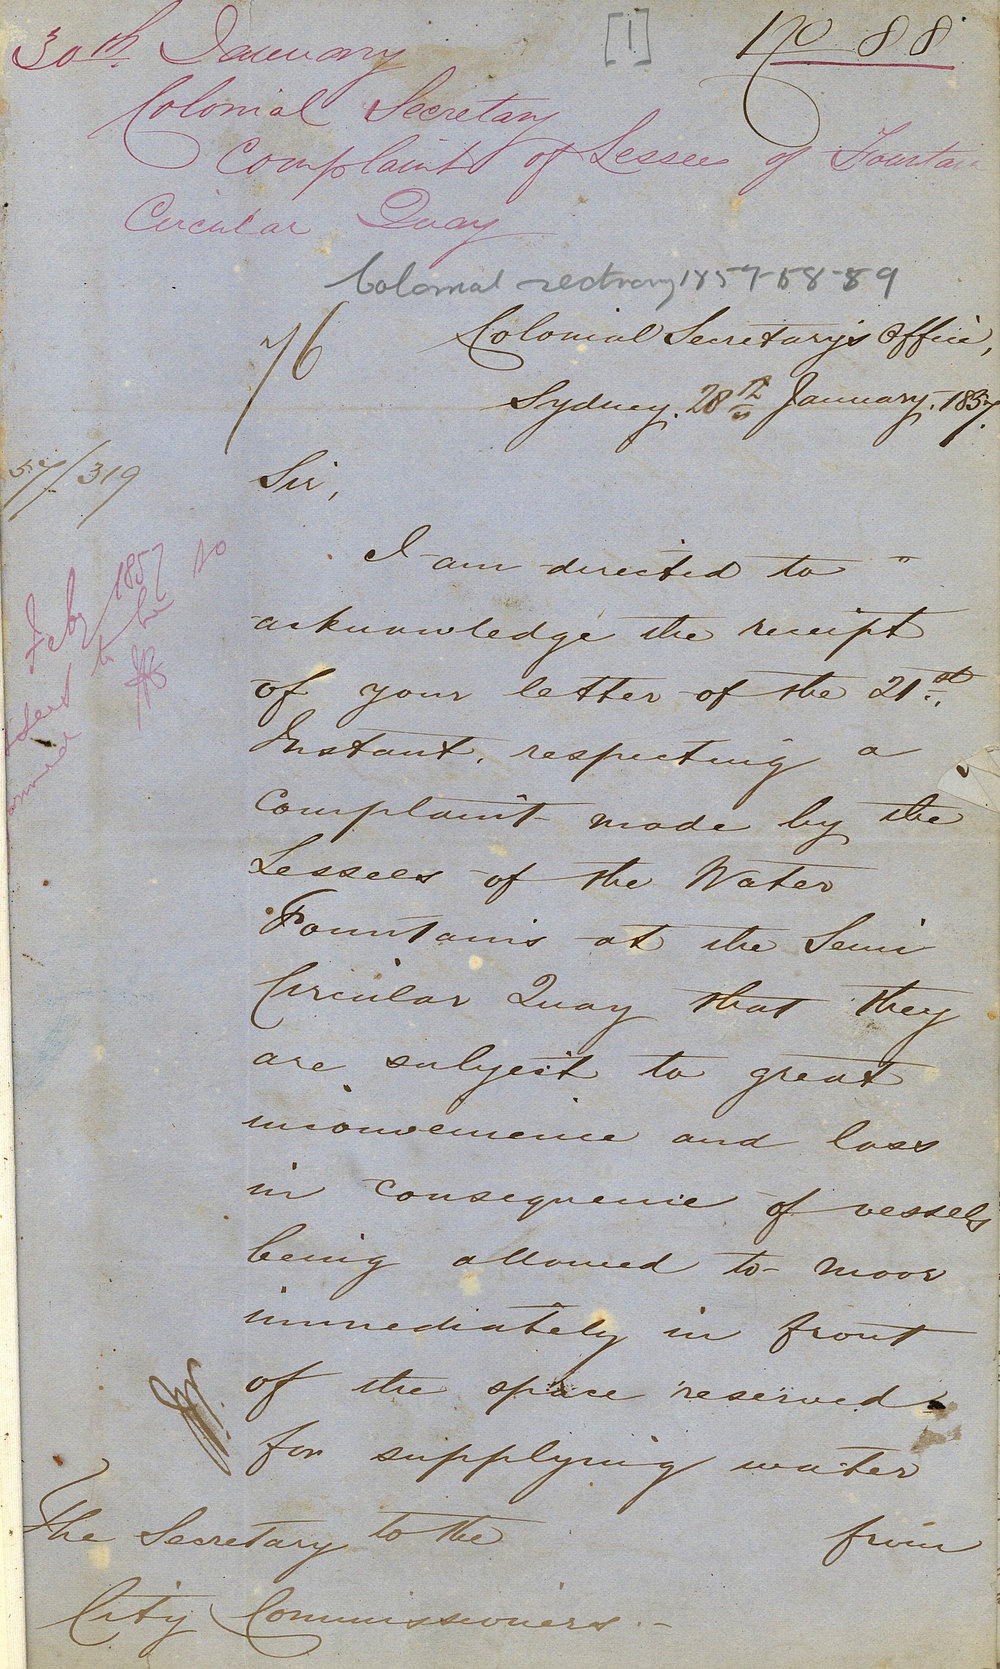 [1]
No 88
30th January
Colonial Secretary
Complaint of Lessees of Fountain
Circular Quay
Colonial 1857-58-89
76
Colonial Secretary's Office,
Sydney. 28th January. 1857.
57/319
Sir,
I am directed to "
acknowledge the receipt
of your letter of the 21st.
Instant, respecting a
Complaint made by the
Lessees of the Water
Fountains at the Semi
Circular Quay that they
are subject to great
inconvenience and loss
in consequence of vessels
being allowed to moor
immediately in front
of the space reserved
for supplying water
from
The Secretary to the
City Commissioners. -
Feby 1857
to be so